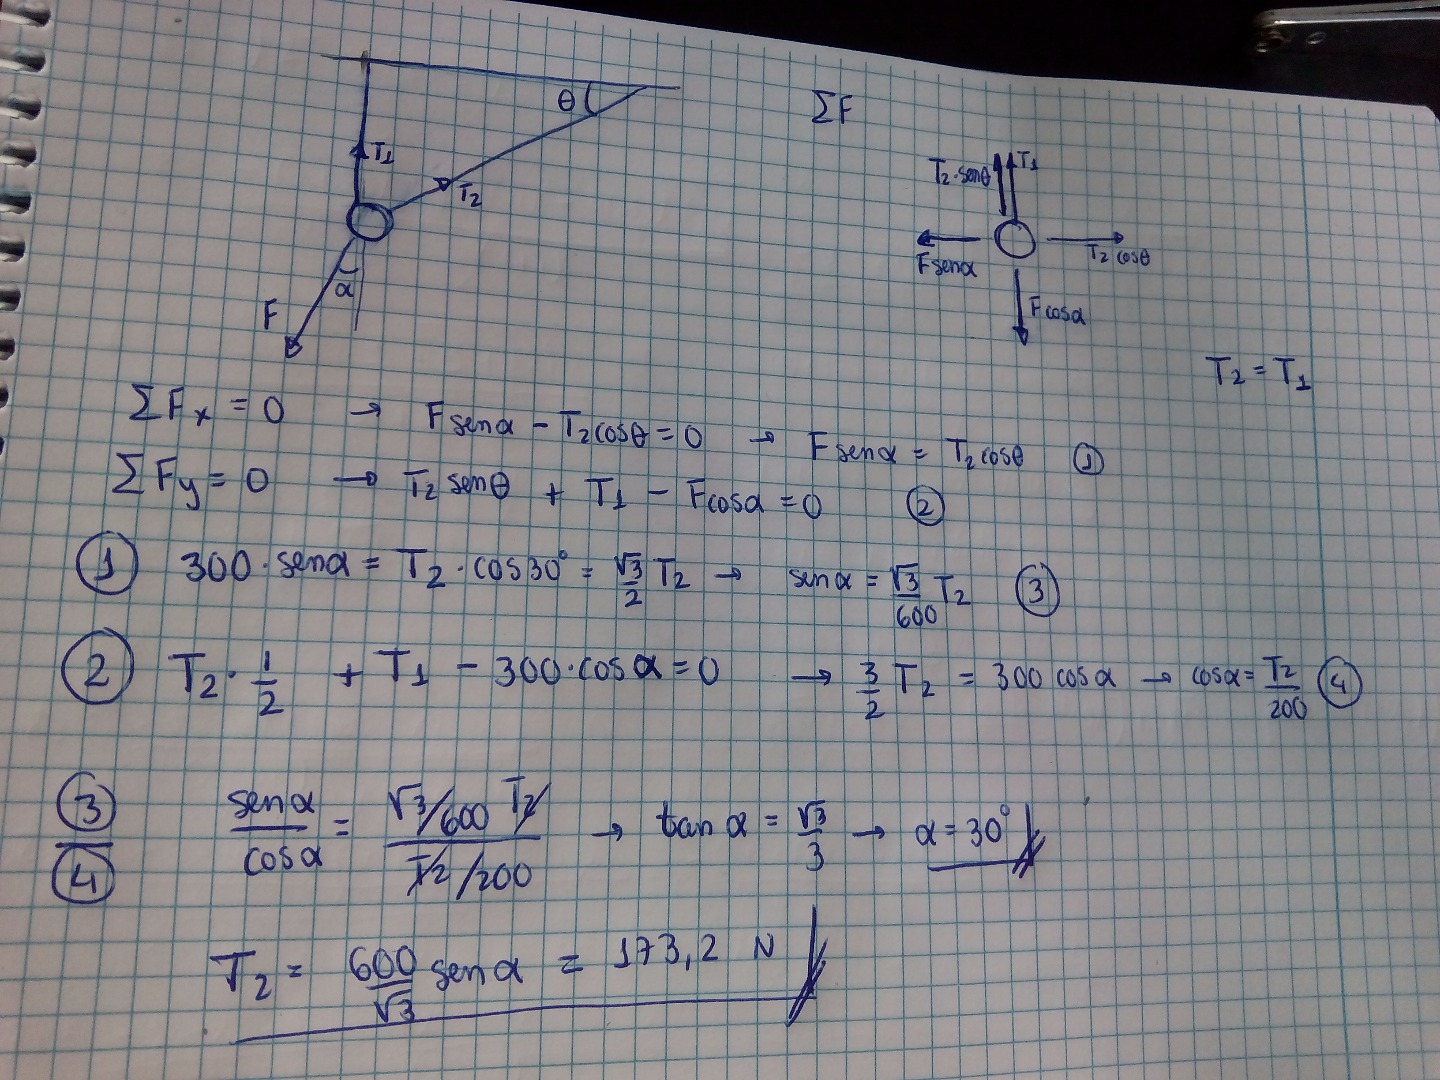 θ
ΣF
T1
T2
T2·senθ
T1
Fsenα
T2 cosθ
α
F
Fcosα
T2 = T1
ΣFx = 0 → Fsenα - T2cosθ = 0 → Fsenα = T2cosθ ①
ΣFy = 0 → T2 senθ + T1 - Fcosα = 0 ②
① 300·senα = T2·cos30° = √3/2 T2 → senα = √3/600 T2 ③
② T2·1/2 + T1 - 300·cosα = 0 → 3/2 T2 = 300 cosα → cosα = T2/200 ④
③/④ senα/cosα = √3/600 T2 / T2/200 → tan α = √3/3 → α = 30°
T2 = 600/√3 senα = 173,2 N